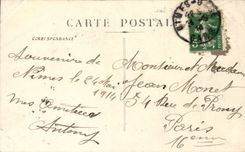 CARTE POSTALE
CORRESPONDANCE
Souvenir de Monsieur et Madame
Nimes le 24 Mai Jean Monet
1914 54 Rue de Prony
mes Amitiées Paris
Antony